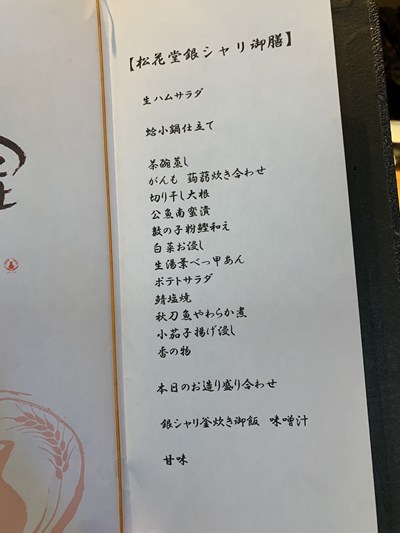 【松花堂銀シャリ御膳】
生ハムサラダ
蛤小鍋仕立て
茶碗蒸し
がんも 蒟蒻炊き合わせ
切り干し大根
公魚南蜜漬
数の子粉鰹和え
白菜お浸し
生湯葉べっ甲あん
ポテトサラダ
鯖塩焼
秋刀魚やわらか煮
小茄子揚げ浸し
香の物
本日のお造り盛り合わせ
銀シャリ釜炊き御飯 味噌汁
甘味